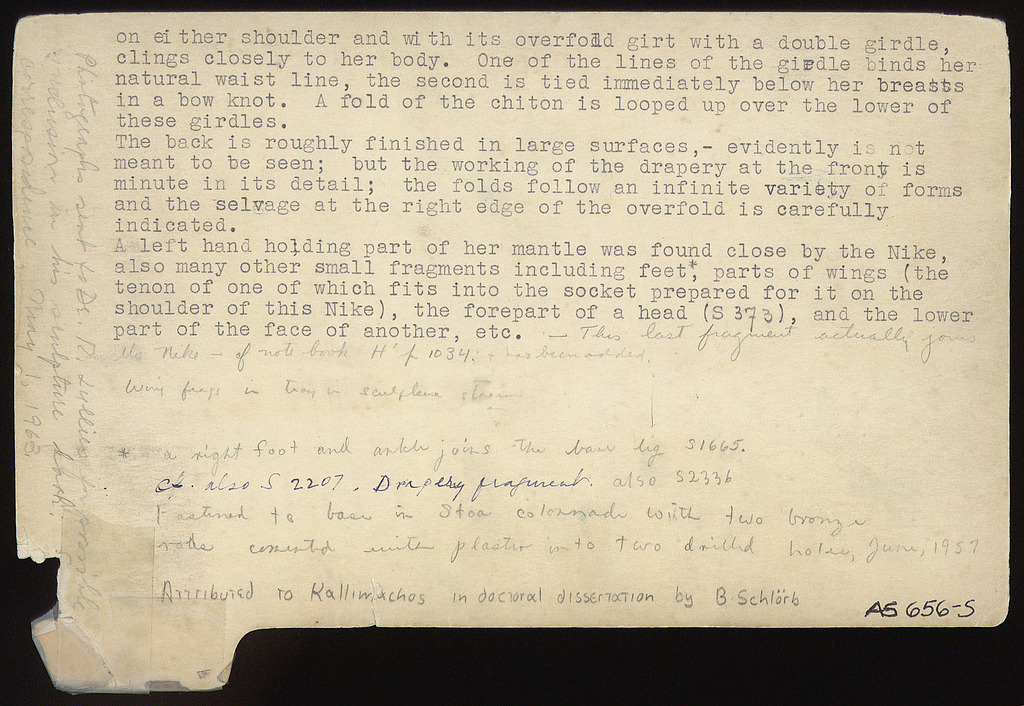 on either shoulder and with its overfold girt with a double girdle,
clings closely to her body. One of the lines of the girdle binds her
natural waist line, the second is tied immediately below her breasts
in a bow knot. A fold of the chiton is looped up over the lower of
these girdles.
The back is roughly finished in large surfaces,- evidently is not
meant to be seen; but the working of the drapery at the front is
minute in its detail; the folds follow an infinite variety of forms
and the selvage at the right edge of the overfold is carefully
indicated.
A left hand holding part of her mantle was found close by the Nike,
also many other small fragments including feet*, parts of wings (the
tenon of one of which fits into the socket prepared for it on the
shoulder of this Nike), the forepart of a head (S 373), and the lower
part of the face of another, etc. — This last fragment actually joins
the Nike — cf note book H' p 1034. + has been added.
Wing frags in tray in sculpture
* a right foot and ankle joins the base S1665.
cf. also S 2207. Drapery fragment. also S2336
Fastened to base in Stoa colonnade with two bronze
rods cemented with plaster into two drilled holes, June, 1957
Attributed to Kallimachos in doctoral dissertation by B. Schlörb
AS 656-S
Photographs sent to Dr. R. Lullies for possible
inclusion in his sculpture book.
Correspondence 1963